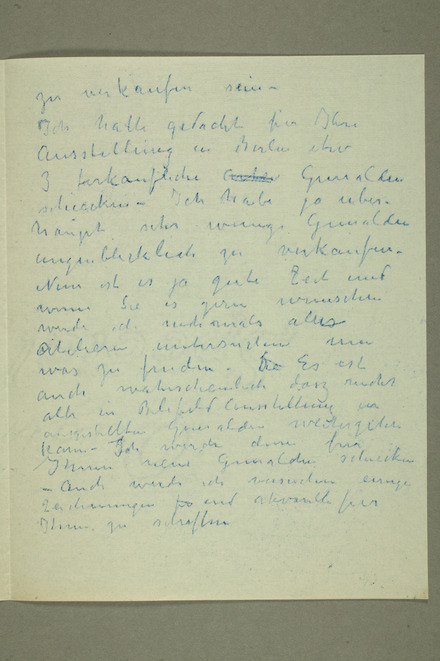 zu verkaufen sein –
Ich hatte gedacht für Ihre
Ausstellung in Berlin
3 Gemalden
schicken – Ich habe ja uber-
haupt sehr wenige Gemalden
augenblicklich zu verkaufen –
Nun ist es ja gute Zeit und
wenn Sie es gern wunschen
werde ich nochmals alles
untersuchen um
was zu finden – Es ist
auch wahrscheinlich dasz nicht
alle in Bielefeld Ausstellung
ausgestellten Gemalden weitergehen
kann – Ich werde dann fur
Ihnen neue Gemalden schicken
– auch werde ich versuchen einige
Zeichnungen und akvarelle fur
Ihnen zu schaffen